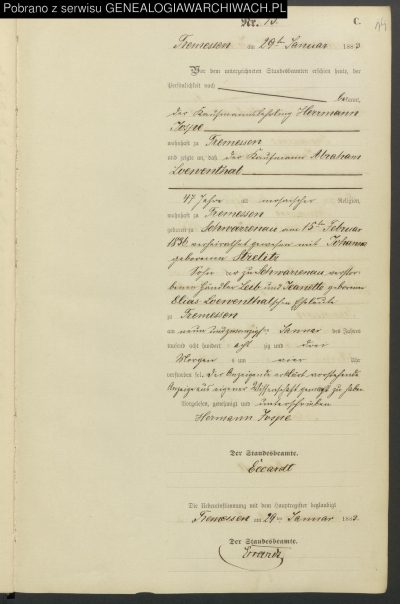 Pobrano z serwisu GENEALOGIAWARCHIWACH.PL
Nr. 15. C.
Tremessen am 29ten Januar 1883
Vor dem unterzeichneten Standesbeamten erschien heute, der
Persönlichkeit nach
bekannt,
der Kaufmannslehrling Herrmann
Jospe
wohnhaft zu Tremessen
und zeigte an, daß der Kaufmann Abraham
Loewenthal
47 Jahre alt mosaischer Religion,
wohnhaft zu Tremessen
geboren zu Schwarzenau am 15ten Februar
1836 verheirathet gewesen mit Johanna
geborenen Strelitz
Sohn der zu Schwarzenau verstor-
benen Händler Loeb und Jeanette geborenen
Elias Loewenthalschen Eheleute
zu Tremessen
am neun und zwanzigsten Januar des Jahres
tausend acht hundert achtzig und drei
Morgens um vier Uhr
verstorben sei. Der Anzeigende erklärt vorstehende
Anzeige aus eigener Wissenschaft gemacht zu haben
Vorgelesen, genehmigt und unterschrieben
Hermann Jospe
Der Standesbeamte.
Eccardt
Die Uebereinstimmung mit dem Hauptregister beglaubigt
Tremessen am 29ten Januar 1883.
Der Standesbeamte.
Eccardt